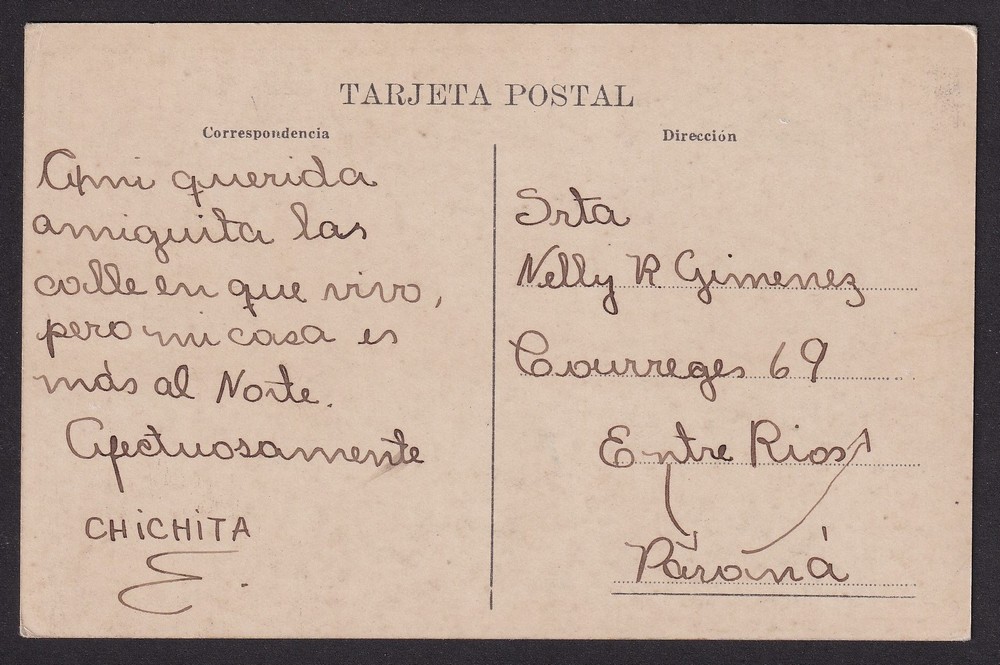 TARJETA POSTAL
Correspondencia
A mi querida
amiguita las
calle en que vivo,
pero mi casa es
más al Norte.
Afectuosamente
CHiCHiTA
E.
Dirección
Srta
Nelly R. Gimenez
Courreges 69
Entre Rios
Paraná